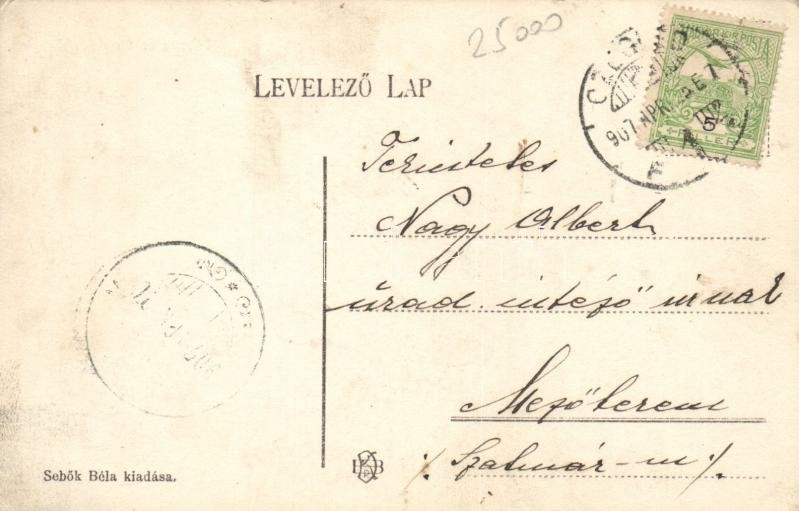 25000
LEVELEZŐ LAP
MAGYAR KIR. POSTA
5
FILLÉR
907 APR 22 E 7
Tekintetes
Nagy Albert
urad. intéző urnak
Mezőterem
/: Szatmár-m :/.
Sebők Béla kiadása.